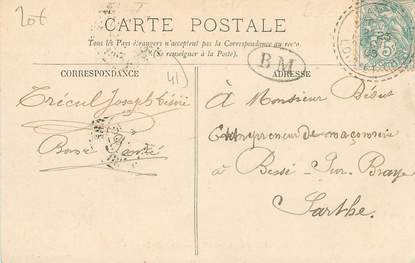 20f
CARTE POSTALE
Tous les Pays étrangers n'acceptent pas la Correspondance au recto.
(Se renseigner à la Poste).
BM
CORRESPONDANCE
ADRESSE
41
Trécul Joseph
Bonne Santé
à Monsieur
Entrepreneur de maçonnerie
à Bessé Sur Braye
Sarthe.